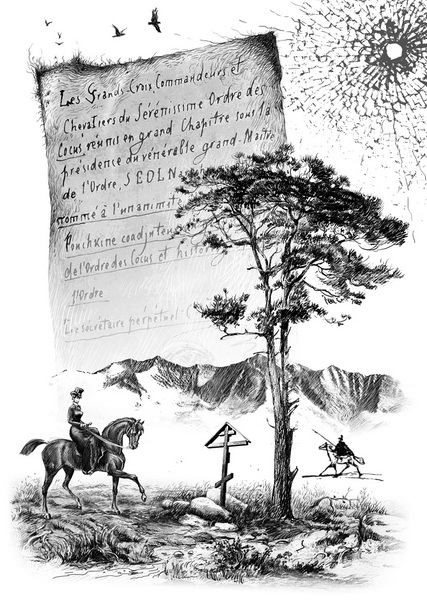 Les Grands Croix, Commandeurs et
Chevaliers du Sérénissime Ordre des
Cocus, réunis en grand Chapitre sous la
présidence du vénérable grand-Maître
de l'Ordre, S E D L N
nommé à l'unanimit
Pouchkine coadjuteu
de l'Ordre des Cocus et histori
l'Ordre
Le secrétaire perpétuel C